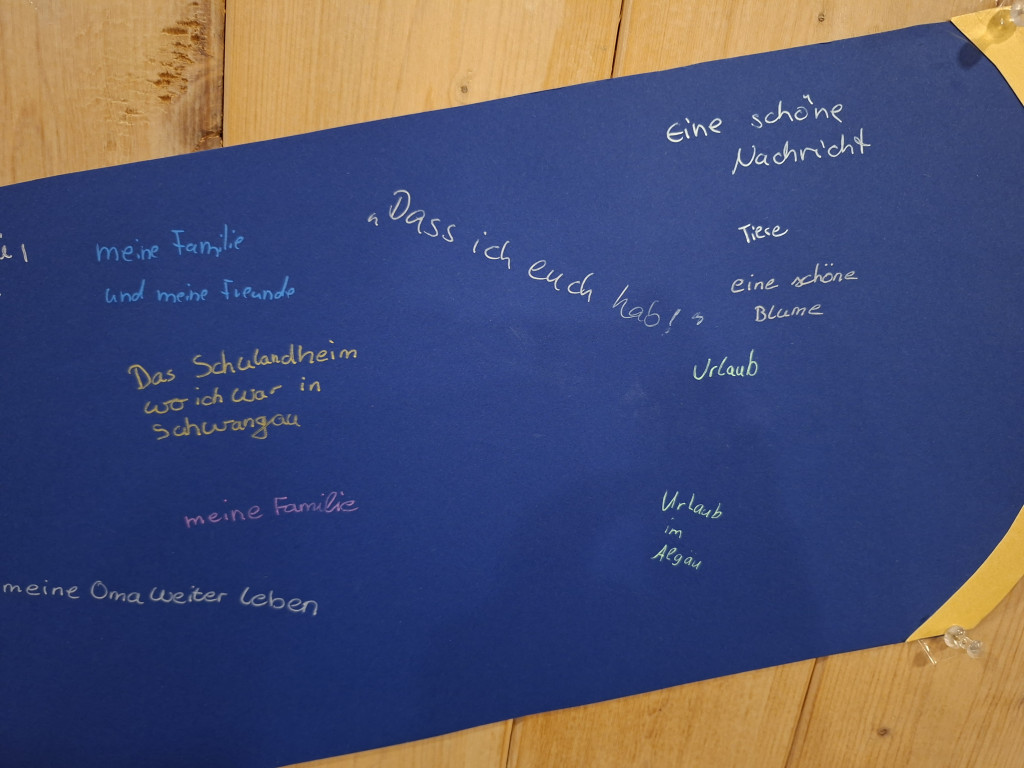 meine Familie
und meine Freunde
Das Schulandheim
wo ich war in
Schwangau
meine Familie
meine Oma weiter leben
"Dass ich euch hab!"
Eine schöne
Nachricht
Tiere
eine schöne
Blume
Urlaub
Urlaub
im
Algäu